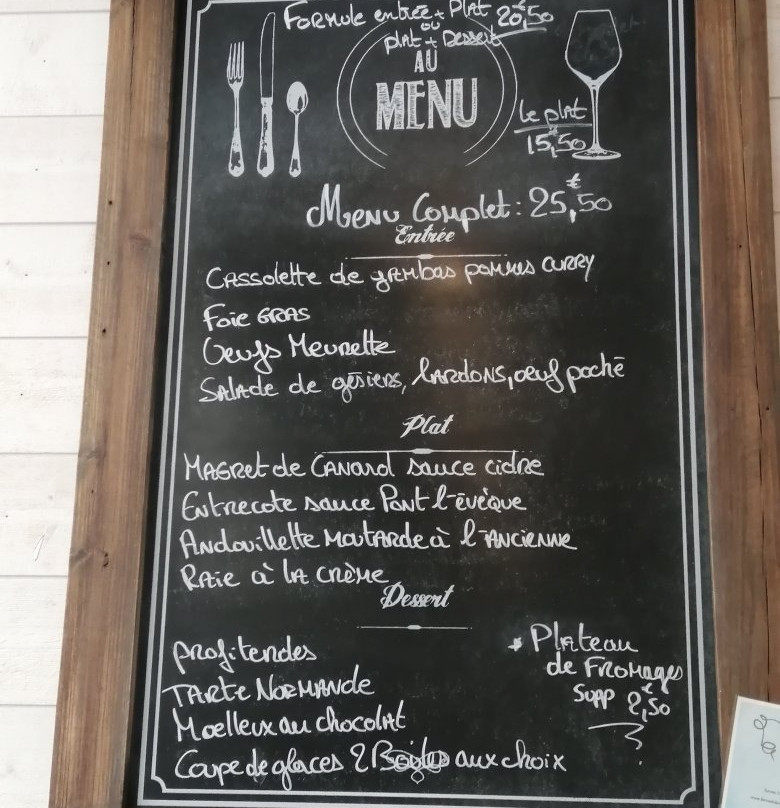 Formule entrée + Plat 20,50€
ou
plat + Dessert
AU
MENU
le plat
15,50€
Menu Complet : 25,50€
Entrée
Cassolette de gambas pommes curry
Foie gras
Oeufs Meurette
Salade de gésiers, lardons, oeuf poché
Plat
Magret de Canard sauce cidre
Entrecote sauce Pont l'évêque
Andouillette Moutarde à l'ancienne
Raie à la crème
Dessert
profiteroles
Tarte Normande
Moelleux au chocolat
Coupe de glaces 2 Boules aux choix
* Plateau
de Fromages
Supp 2,50€